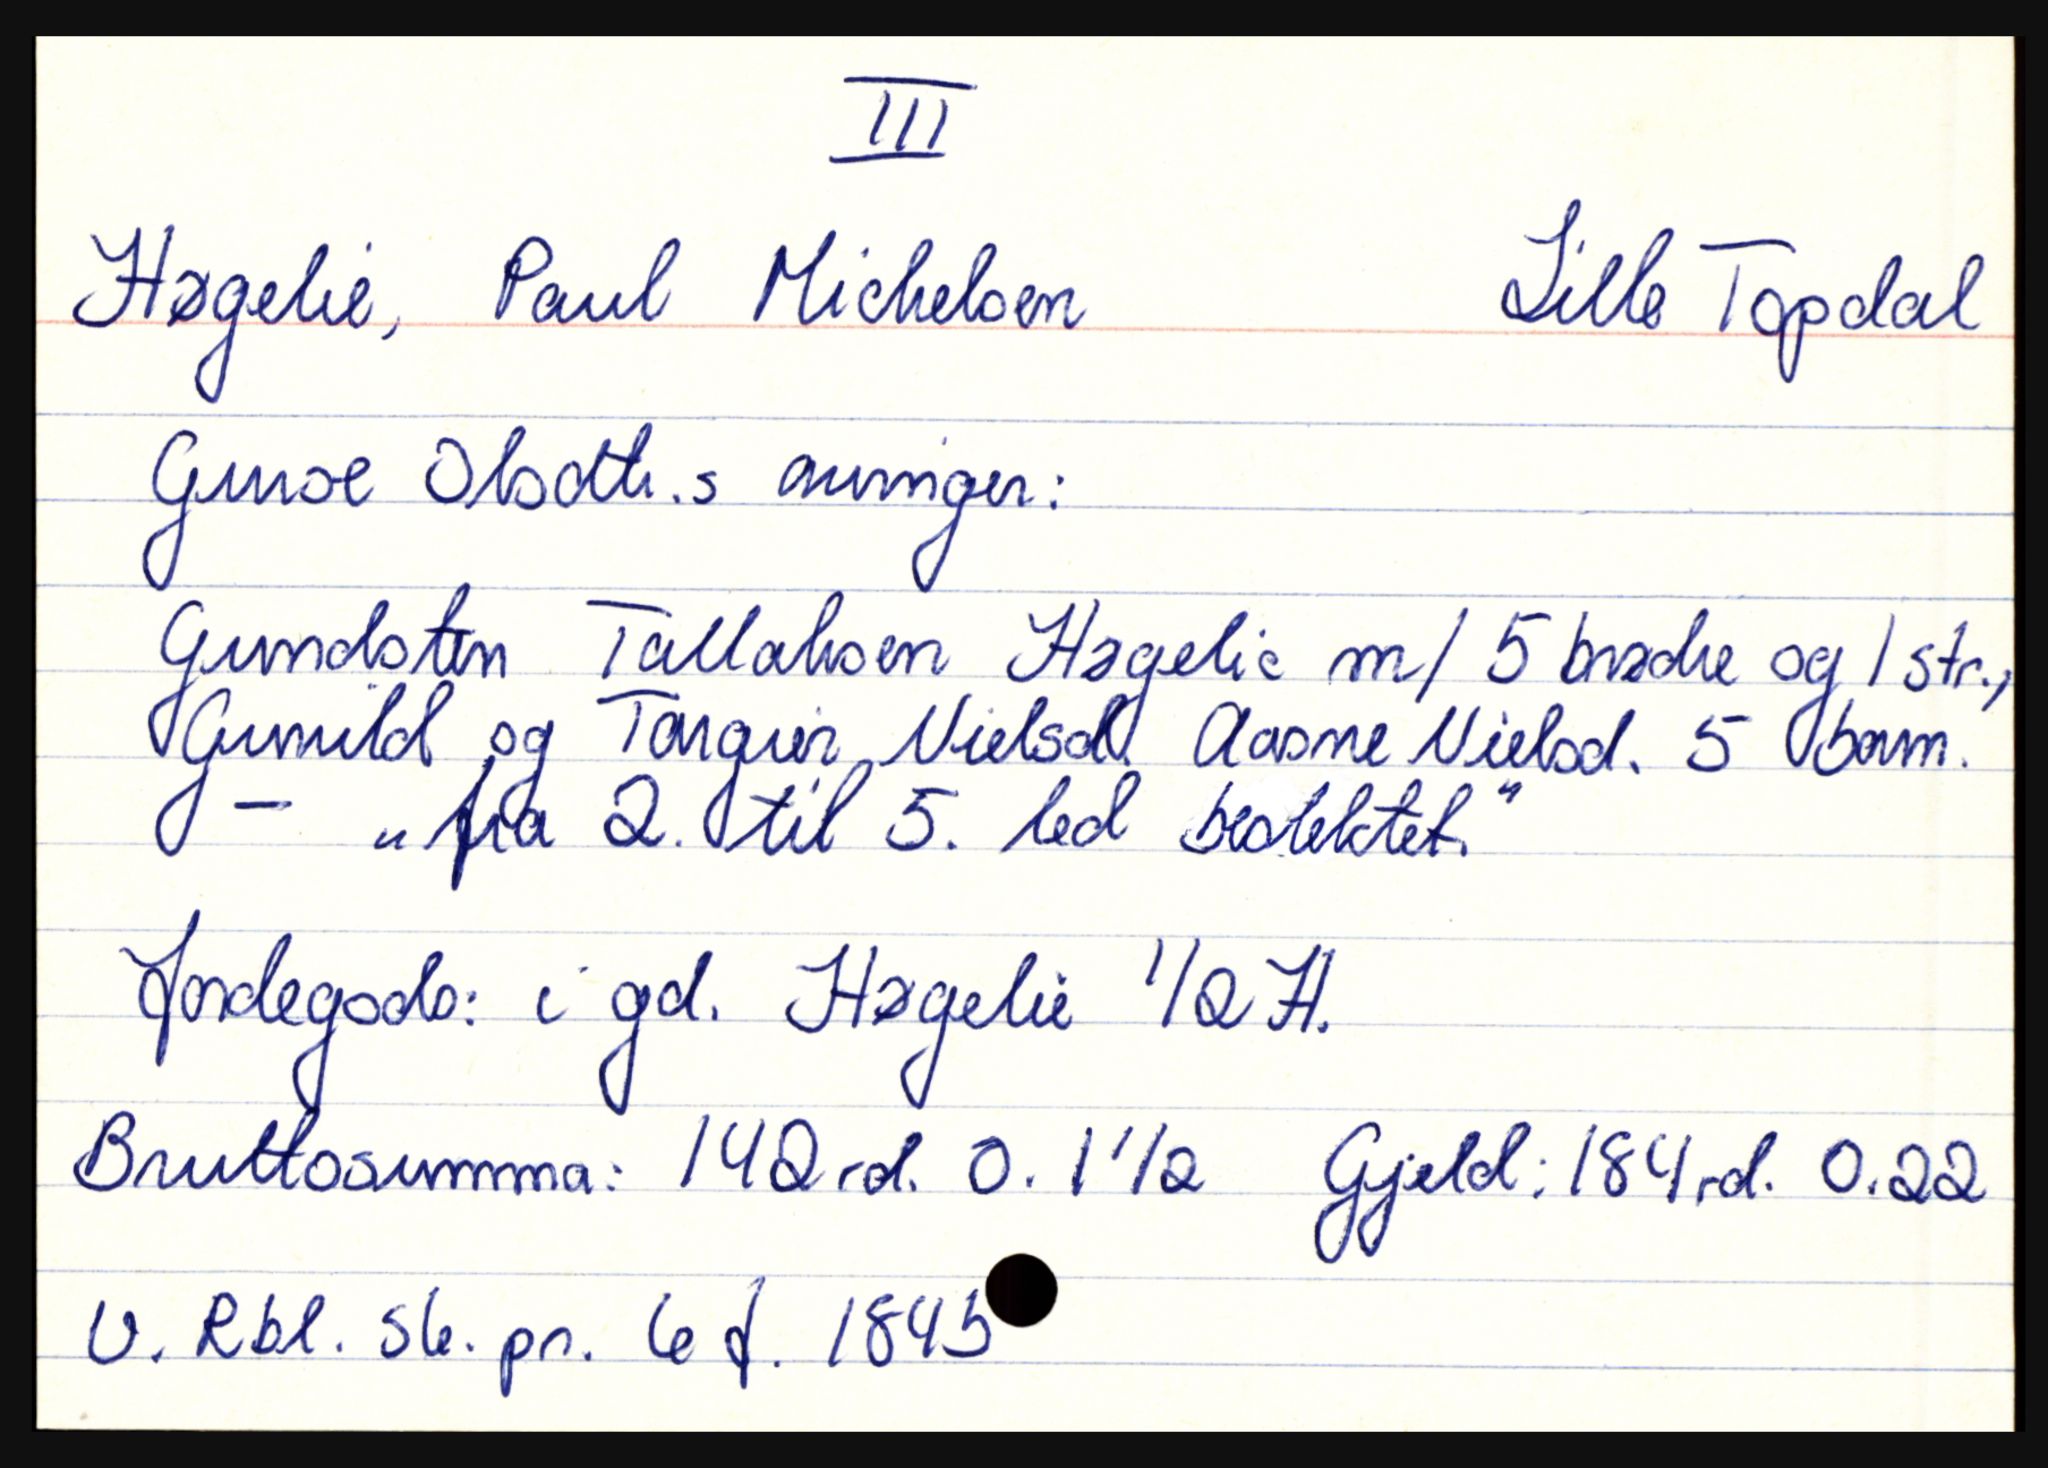 III
Høgelie, Paul Michelsen Lille Topdal
Guroe Olsdtr.s arvinger:
Gundsten Tallaksen Høgelie m/ 5 brødre og 1 str.,
Gunnild og Targier Nielsd. Aasne Nielsd. 5 barn.
- "fra 2. til 5. led beslektet."
Jordegods: i gd. Høgelie 1/2 H.
Bruttosumma: 142 rd. 0. 1 1/2 Gjeld: 184 rd. 0.22
V. Rbl. Sk. pr. 6 f. 1845